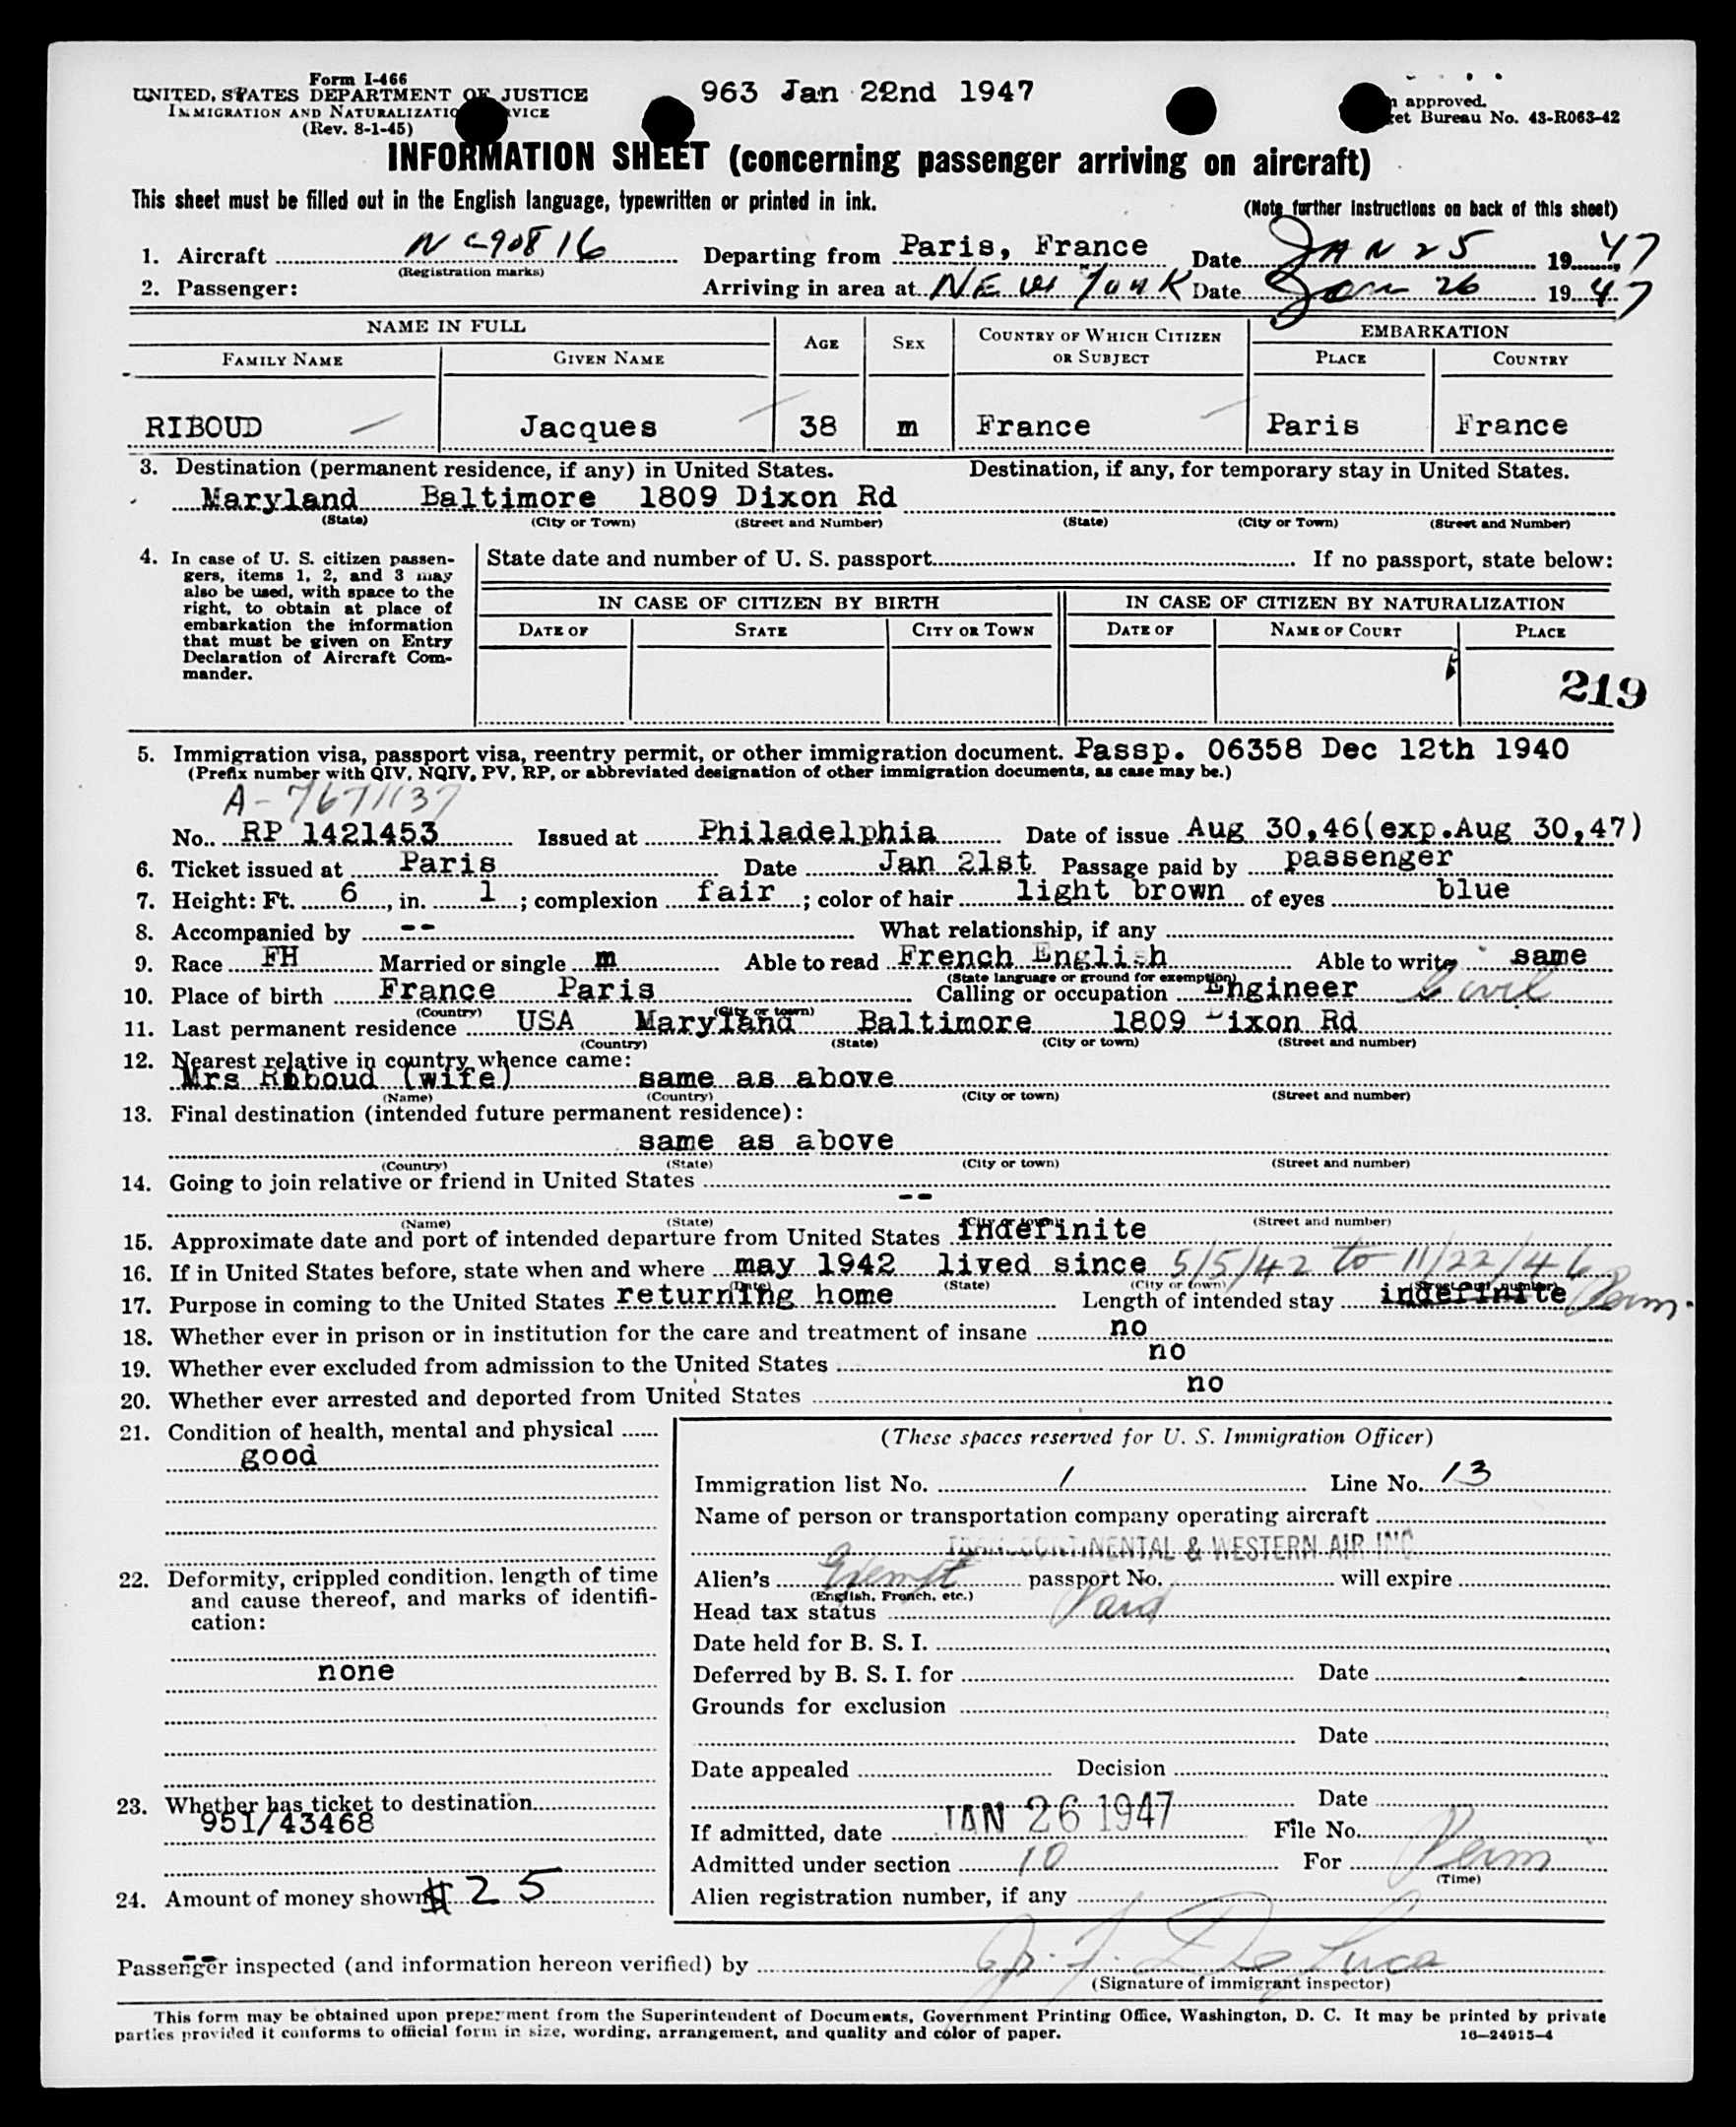 Form I-466
UNITED STATES DEPARTMENT OF JUSTICE
IMMIGRATION AND NATURALIZATION SERVICE
(Rev. 8-1-45)
963 Jan 22nd 1947
approved.
Bureau No. 43-R063-42
INFORMATION SHEET (concerning passenger arriving on aircraft)
This sheet must be filled out in the English language, typewritten or printed in ink.
(Note further instructions on back of this sheet)
1. Aircraft NC90816 Departing from Paris, France Date JAN 25 1947
(Registration marks)
2. Passenger: Arriving in area at NEW YORK Date Jan 26 1947
NAME IN FULL AGE SEX COUNTRY OF WHICH CITIZEN OR SUBJECT EMBARKATION
FAMILY NAME GIVEN NAME PLACE COUNTRY
RIBOUD Jacques 38 m France Paris France
3. Destination (permanent residence, if any) in United States. Destination, if any, for temporary stay in United States.
Maryland Baltimore 1809 Dixon Rd
(State) (City or Town) (Street and Number) (State) (City or Town) (Street and Number)
4. In case of U. S. citizen passengers, items 1, 2, and 3 may also be used, with space to the right, to obtain at place of embarkation the information that must be given on Entry Declaration of Aircraft Commander.
State date and number of U. S. passport If no passport, state below:
IN CASE OF CITIZEN BY BIRTH IN CASE OF CITIZEN BY NATURALIZATION
DATE OF STATE CITY OR TOWN DATE OF NAME OF COURT PLACE
219
5. Immigration visa, passport visa, reentry permit, or other immigration document. Passp. 06358 Dec 12th 1940
(Prefix number with QIV, NQIV, PV, RP, or abbreviated designation of other immigration documents, as case may be.)
A-7671137
No. RP 1421453 Issued at Philadelphia Date of issue Aug 30,46(exp.Aug 30,47)
6. Ticket issued at Paris Date Jan 21st Passage paid by passenger
7. Height: Ft. 6, in. 1; complexion fair; color of hair light brown of eyes blue
8. Accompanied by -- What relationship, if any
9. Race FH Married or single m Able to read French English Able to write same
(State language or ground for exemption)
10. Place of birth France Paris Calling or occupation Engineer Civil
(Country) (City or town)
11. Last permanent residence USA Maryland Baltimore 1809 Dixon Rd
(Country) (State) (City or town) (Street and number)
12. Nearest relative in country whence came:
Mrs Riboud (wife) same as above
(Name) (Country) (City or town) (Street and number)
13. Final destination (intended future permanent residence):
same as above
(Country) (State) (City or town) (Street and number)
14. Going to join relative or friend in United States
--
(Name) (State) (City or town) (Street and number)
15. Approximate date and port of intended departure from United States indefinite
16. If in United States before, state when and where may 1942 lived since 5/5/42 to 11/22/46
(Date) (State) (City or town) (Street and number)
17. Purpose in coming to the United States returning home Length of intended stay indefinite Perm.
18. Whether ever in prison or in institution for the care and treatment of insane no
19. Whether ever excluded from admission to the United States no
20. Whether ever arrested and deported from United States no
21. Condition of health, mental and physical
good
22. Deformity, crippled condition, length of time and cause thereof, and marks of identification:
none
23. Whether has ticket to destination
951/43468
24. Amount of money shown $25
(These spaces reserved for U. S. Immigration Officer)
Immigration list No. 1 Line No. 13
Name of person or transportation company operating aircraft
TRANSCONTINENTAL & WESTERN AIR INC.
Alien's Exempt passport No. will expire
(English, French, etc.)
Head tax status Paid
Date held for B. S. I.
Deferred by B. S. I. for Date
Grounds for exclusion
Date
Date appealed Decision
Date
If admitted, date JAN 26 1947 File No.
Admitted under section 10 For Perm
(Time)
Alien registration number, if any
Passenger inspected (and information hereon verified) by De Luca
(Signature of immigrant inspector)
This form may be obtained upon prepayment from the Superintendent of Documents, Government Printing Office, Washington, D. C. It may be printed by private
parties provided it conforms to official form in size, wording, arrangement, and quality and color of paper. 16—24915-4